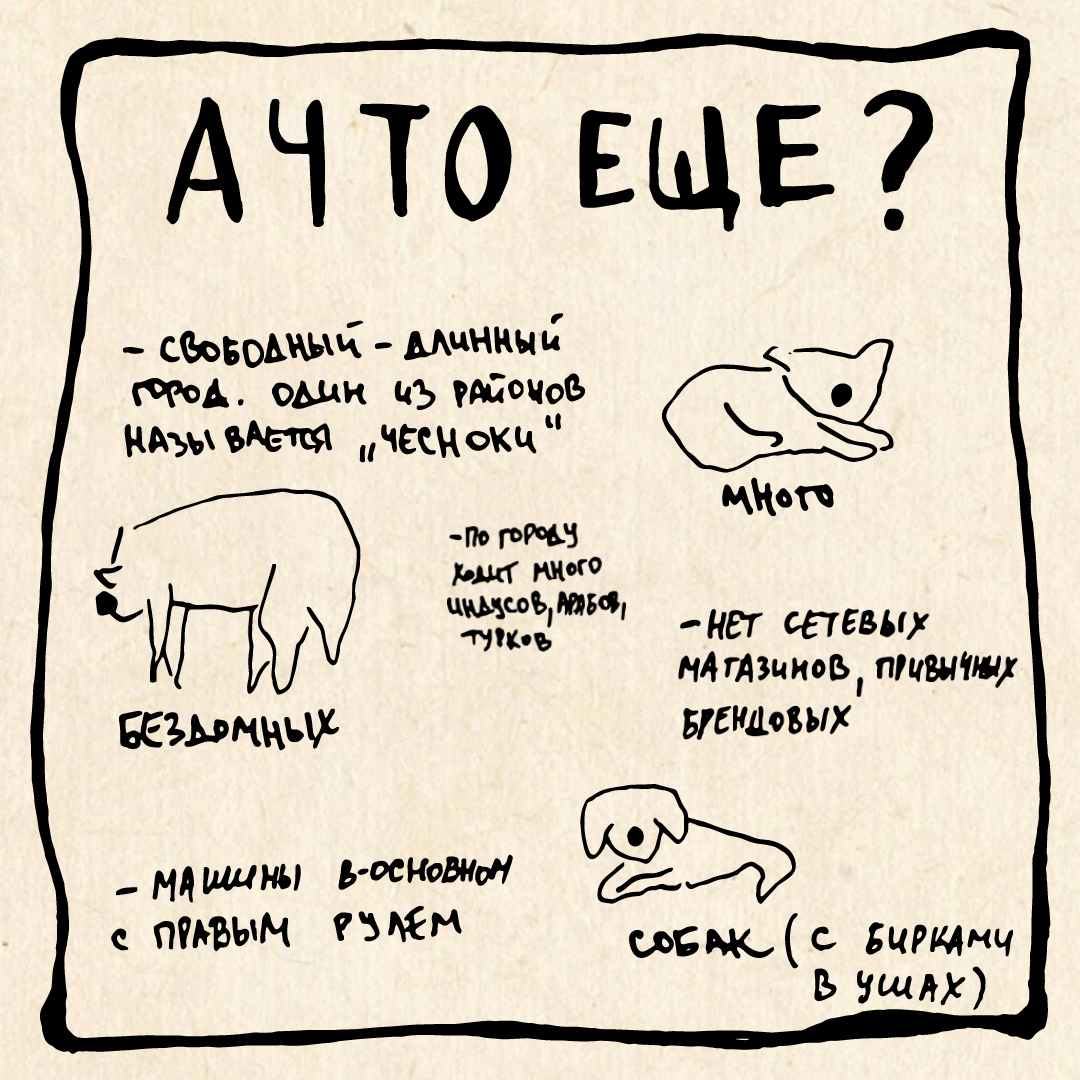 А ЧТО ЕЩЕ?
- СВОБОДНЫЙ - ДЛИННЫЙ
ГОРОД. ОДИН ИЗ РАЙОНОВ
НАЗЫВАЕТСЯ „ЧЕСНОКИ“
МНОГО
БЕЗДОМНЫХ
- ПО ГОРОДУ
ХОДИТ МНОГО
ИНДУСОВ, АРАБОВ,
ТУРКОВ
- НЕТ СЕТЕВЫХ
МАГАЗИНОВ, ПРИВЫЧНЫХ
БРЕНДОВЫХ
- МАШИНЫ В-ОСНОВНОМ
С ПРАВЫМ РУЛЕМ
СОБАК (С БИРКАМИ
В УШАХ)